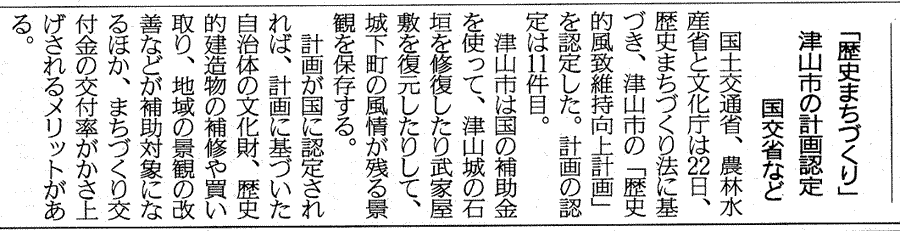 「歴史まちづくり」
津山市の計画認定
国交省など
国土交通省、農林水
産省と文化庁は22日、
歴史まちづくり法に基
づき、津山市の「歴史
的風致維持向上計画」
を認定した。計画の認
定は11件目。
津山市は国の補助金
を使って、津山城の石
垣を修復したり武家屋
敷を復元したりして、
城下町の風情が残る景
観を保存する。
計画が国に認定され
れば、計画に基づいた
自治体の文化財、歴史
的建造物の補修や買い
取り、地域の景観の改
善などが補助対象にな
るほか、まちづくり交
付金の交付率がかさ上
げされるメリットがあ
る。